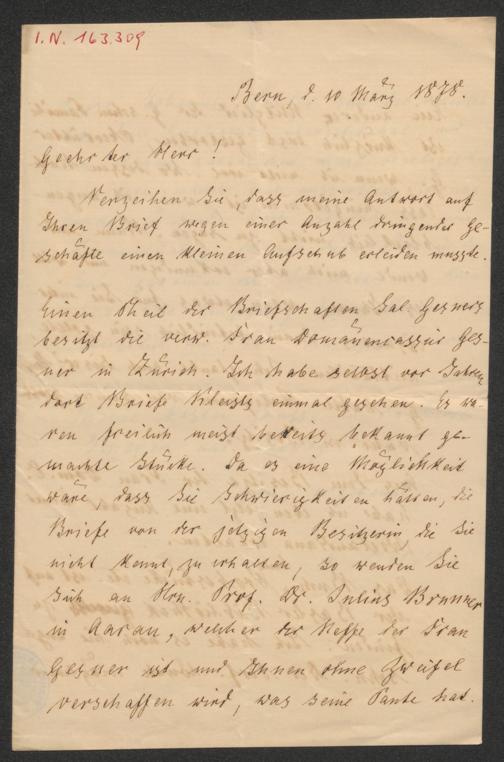 I.N. 163.309
Bern, d. 10 März 1878.
Geehrter Herr!
Verzeihen Sie, dass meine Antwort auf
Ihren Brief wegen einer Anzahl dringender Ge-
schäfte einen kleinen Aufschub erleiden musste.
Einen Theil der Briefschaften Sal. Gesners
besitzt die verw. Frau Domänencassier Ges-
ner in Zürich. Ich habe selbst vor Jahren
dort Briefe Kleists einmal gesehen. Es wa-
ren freilich meist bereits bekannt ge-
machte Stücke. Da es eine Möglichkeit
wäre, dass Sie Schwierigkeiten hätten, die
Briefe von der jetzigen Besitzerin, die Sie
nicht kennt, zu erhalten, so wenden Sie
sich an Hrn. Prof. Dr. Julius Brunner
in Aarau, welcher der Neffe der Frau
Gesner ist und Ihnen ohne Zweifel
verschaffen wird, was seine Tante hat.